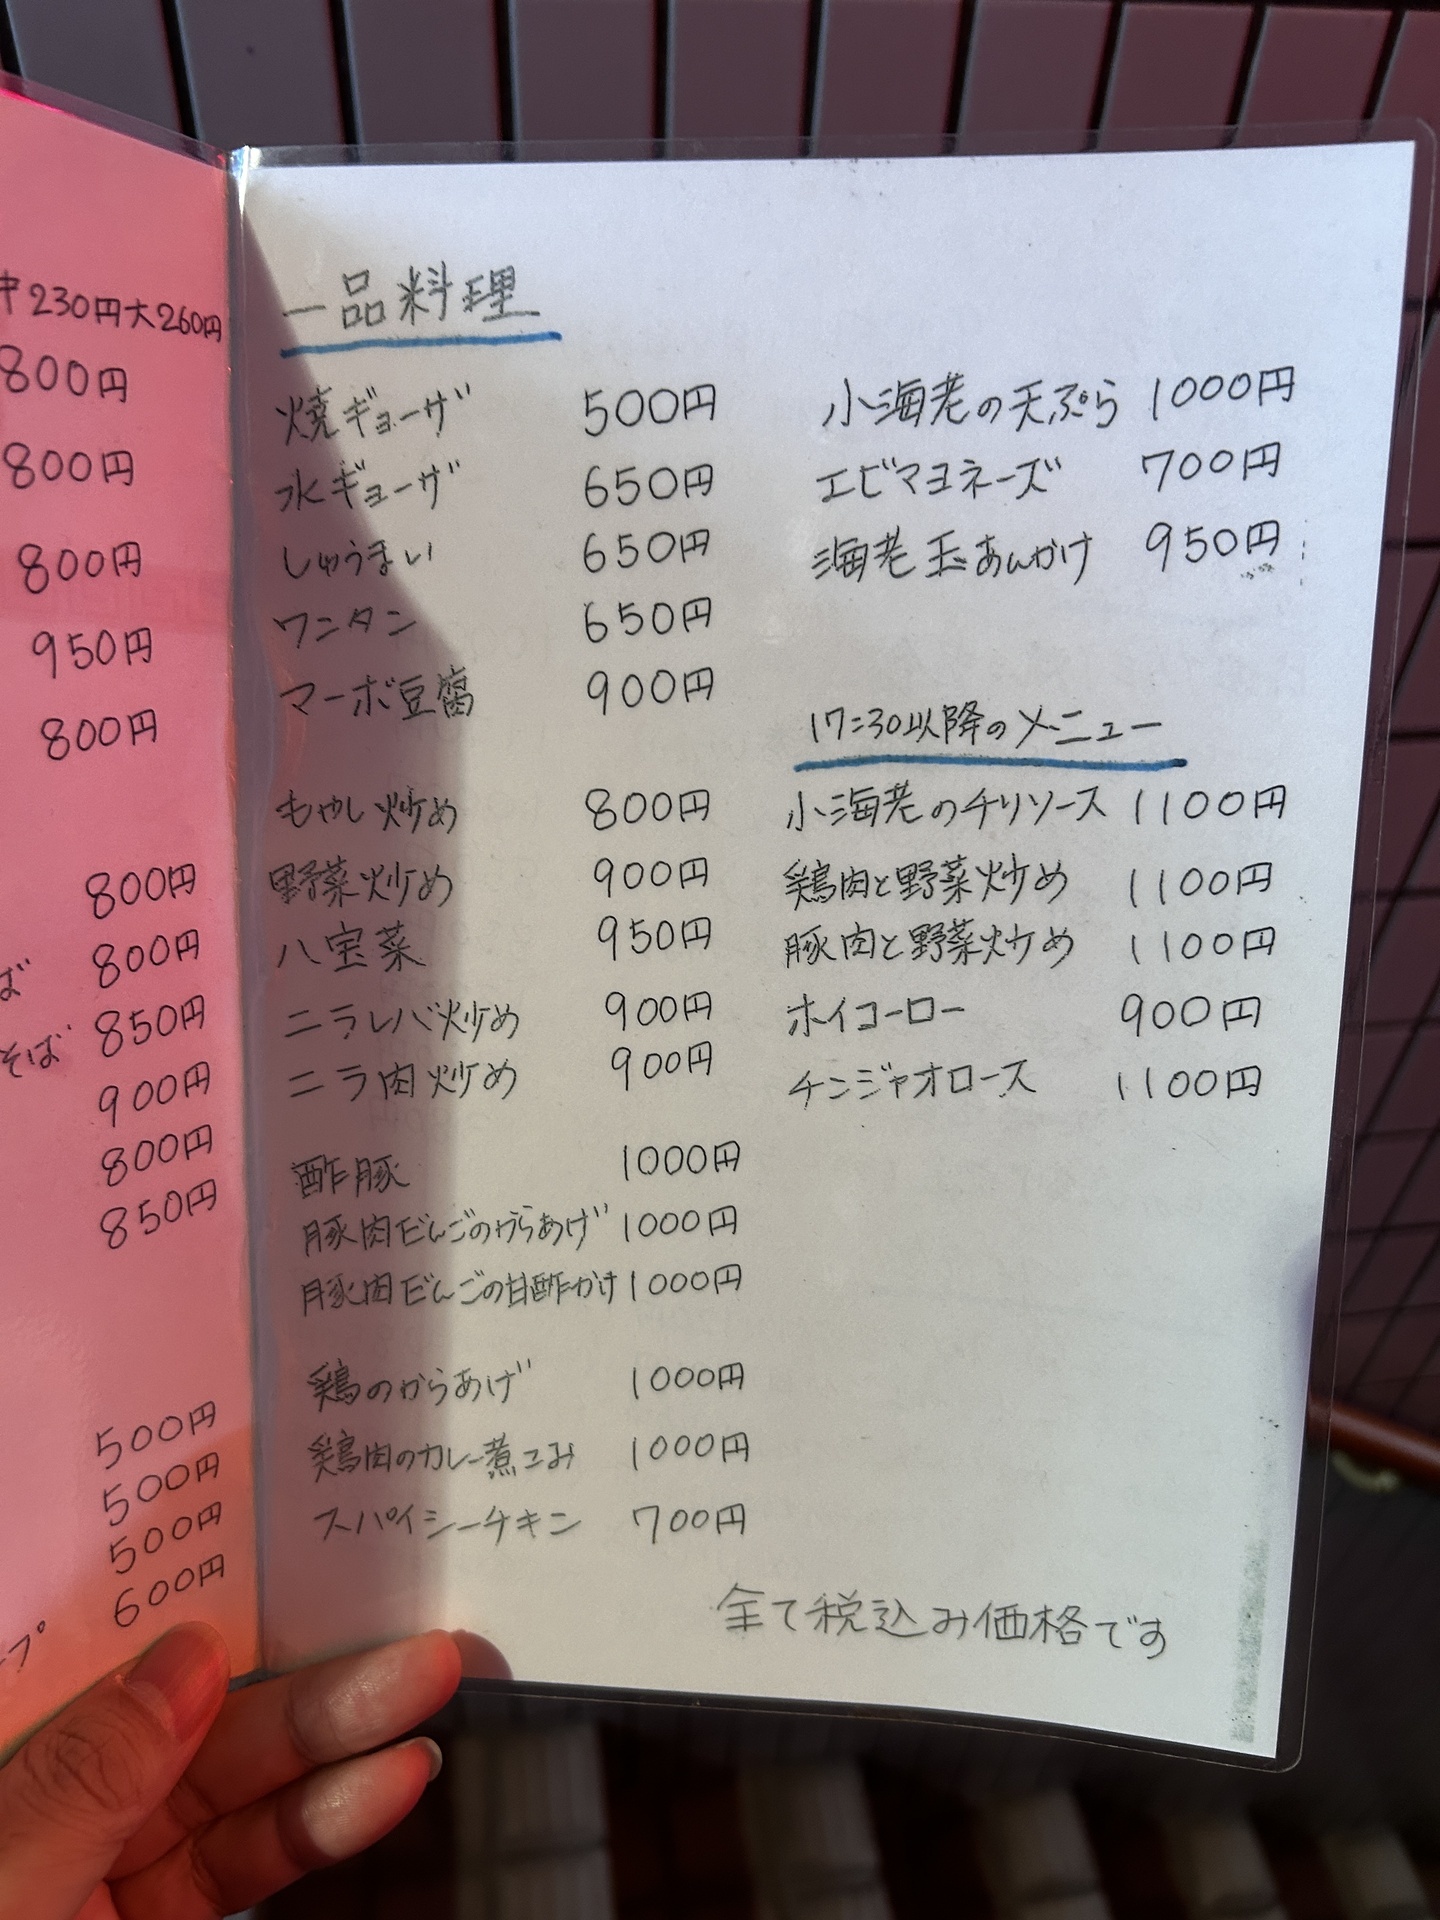 中230円大260円
800円
800円
800円
950円
800円
800円
800円
ば
850円
そば
900円
800円
850円
500円
500円
500円
600円
プ
一品料理
焼ギョーザ 500円
水ギョーザ 650円
しゅうまい 650円
ワンタン 650円
マーボ豆腐 900円
もやし炒め 800円
野菜炒め 900円
八宝菜 950円
ニラレバ炒め 900円
ニラ肉炒め 900円
酢豚 1000円
豚肉だんごのからあげ 1000円
豚肉だんごの甘酢かけ 1000円
鶏のからあげ 1000円
鶏肉のカレー煮こみ 1000円
スパイシーチキン 700円
小海老の天ぷら 1000円
エビマヨネーズ 700円
海老玉あんかけ 950円
17:30以降のメニュー
小海老のチリソース 1100円
鶏肉と野菜炒め 1100円
豚肉と野菜炒め 1100円
ホイコーロー 900円
チンジャオロース 1100円
全て税込み価格です